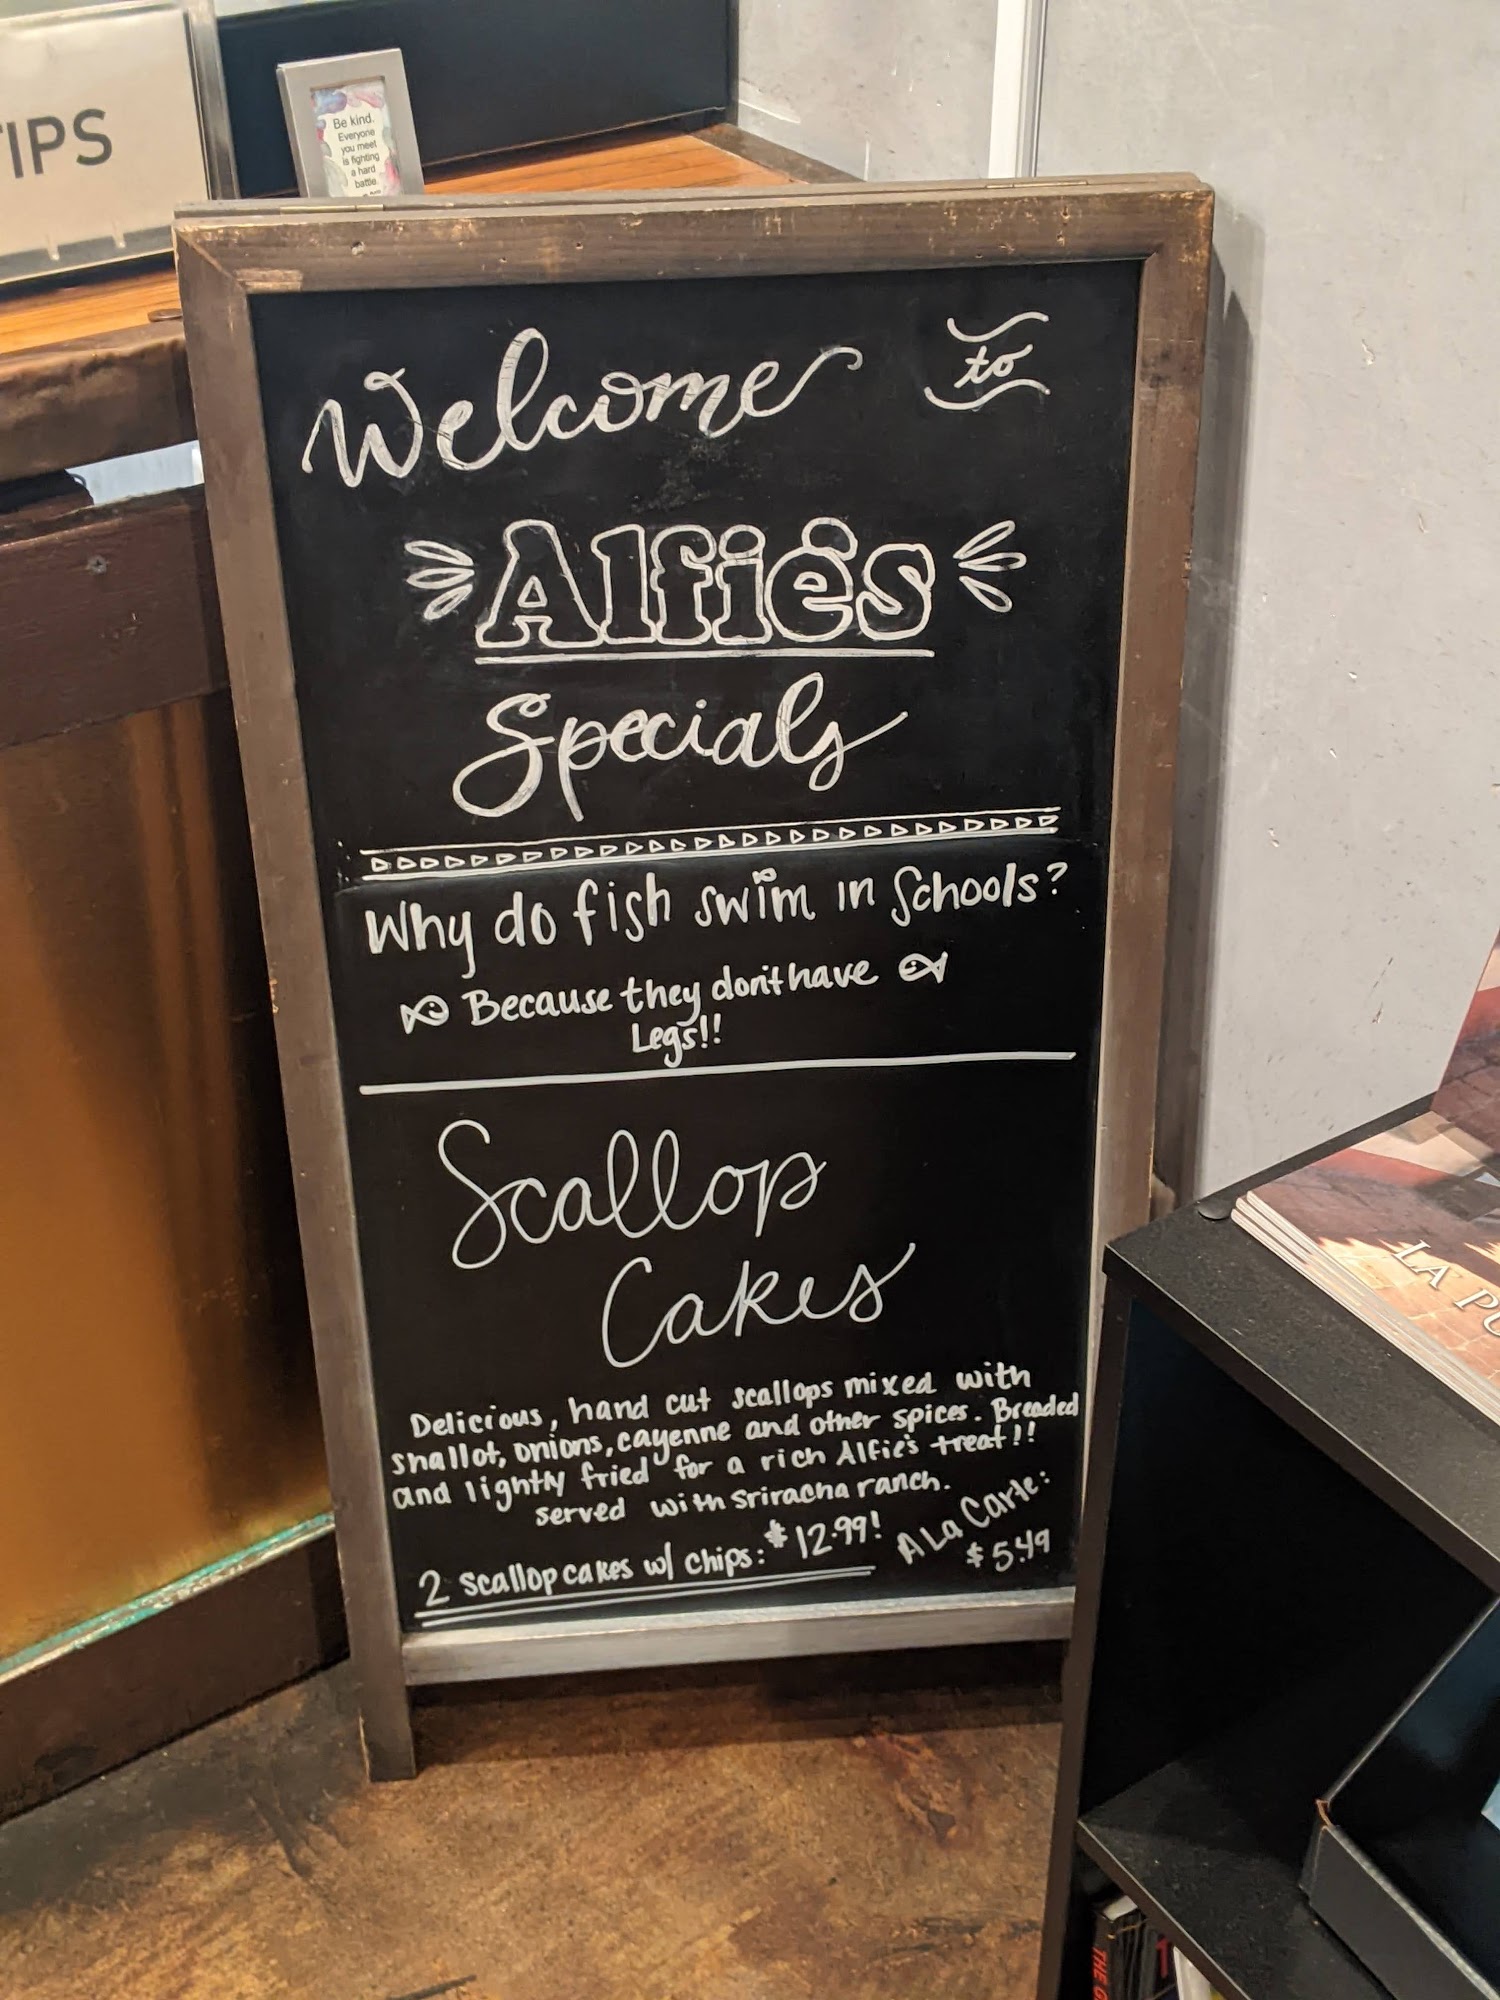 TIPS
Be kind.
Everyone
you meet
is fighting
a hard
battle.
Welcome to
Alfie's
Specials
Why do fish swim in Schools?
Because they don't have
Legs!!
Scallop
Cakes
Delicious, hand cut scallops mixed with
shallot, onions, cayenne and other spices. Breaded
and lightly fried for a rich Alfie's treat!!
served with sriracha ranch.
2 scallop cakes w/ chips: $12.99!
A La Carte:
$5.49
LA PU
THE G